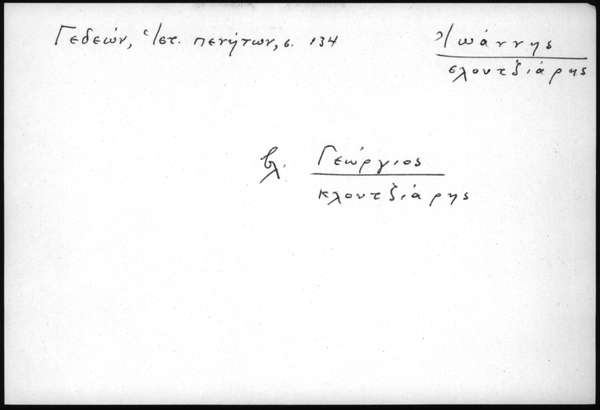 Γεδεών, Ἱστ. πενήτων, σ. 134
Ἰωάννης
σλουτζιάρης
βλ. Γεώργιος
κλουτζιάρης